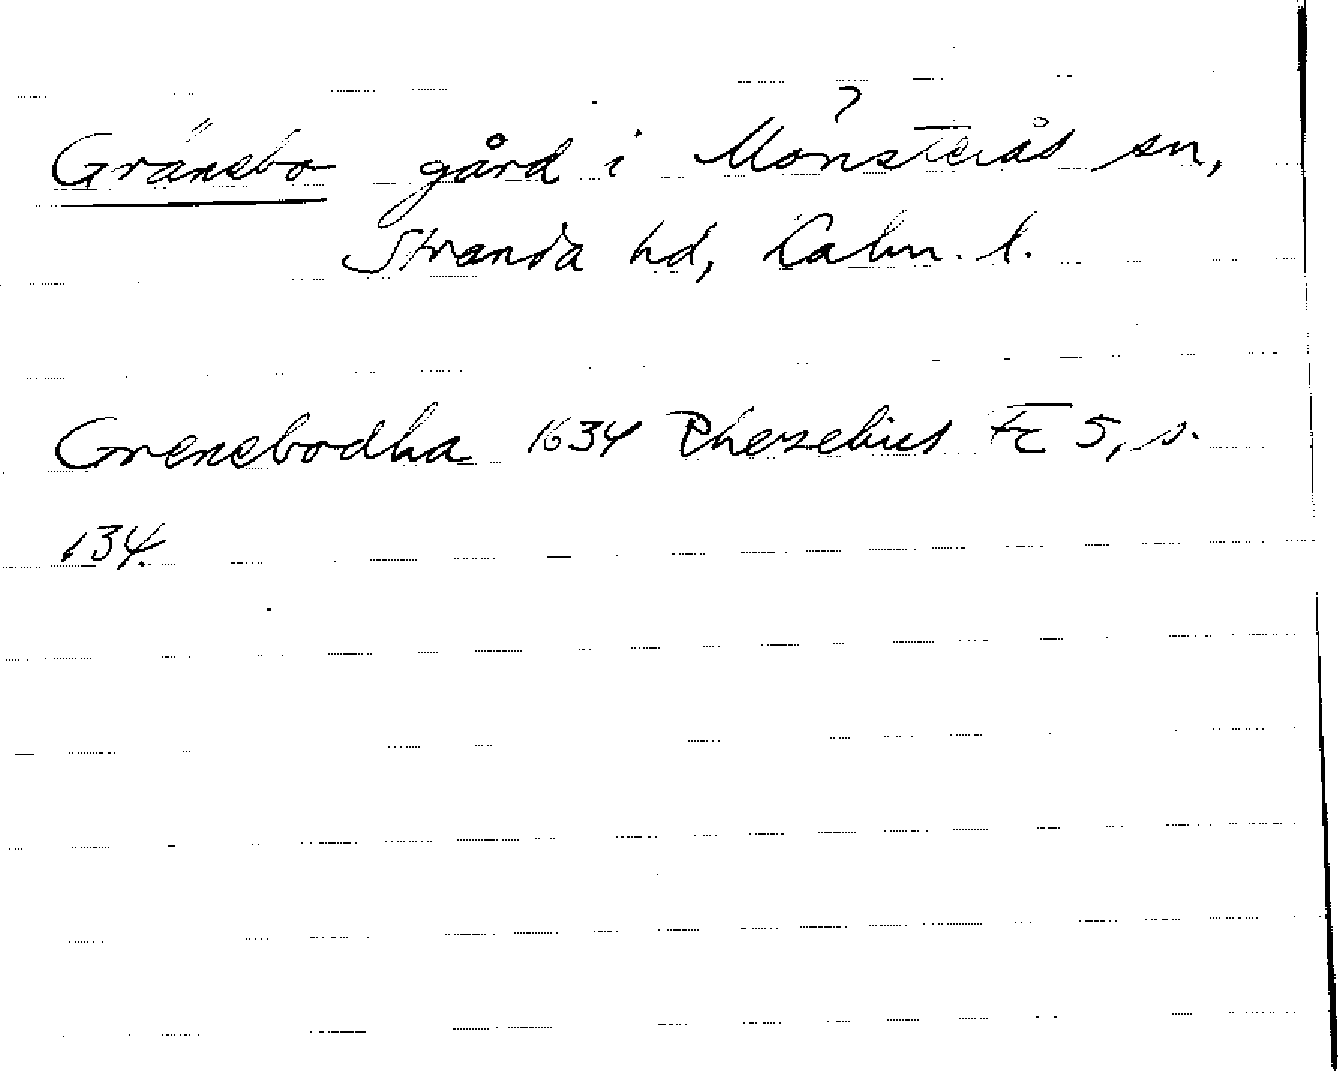 Gränsbo gård i Mönsterås sn,
Stranda hd, Kalm. l.
Grensbodha 1634 Rhezelius Fc 5, s.
134.